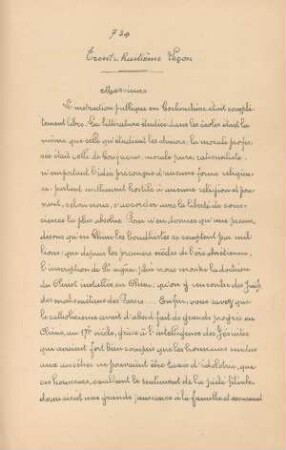 Trente-huitième Leçon
Messieurs
L'instruction publique en Cochinchine était complè-
tement libre. La littérature étudiée dans les écoles était la
même que celle qu'étudient les chinois, la morale profes-
sée était celle de Confucius, morale pure, rationaliste
n'impliquant l'idée préconçue d'aucune forme religieu-
se, partant nullement hostile à aucune religion et pou-
vant, selon nous, s'accorder avec la liberté de cons-
cience la plus absolue. Pour n'en donner qu'une preuve
disons qu'en Chine les bouddhistes se comptent par mil-
lions, que depuis les premiers siècles de l'ère chrétienne
l'inscription de Si-ngan-fou nous montre la doctrine
du Christ installée en Chine, qu'on y rencontre des Juifs
des mahométans des Parsis ... Enfin, vous savez que
le catholicisme avait d'abord fait de grands progrès en
Chine, au 17e siècle, grâce à l'intelligence des Jésuites
qui avaient fort bien compris que les honneurs rendus
aux ancêtres ne pouvaient être taxés d'idolâtrie, que
ces honneurs, exaltant le sentiment de la piété filiale
donnaient une grande puissance à la famille et